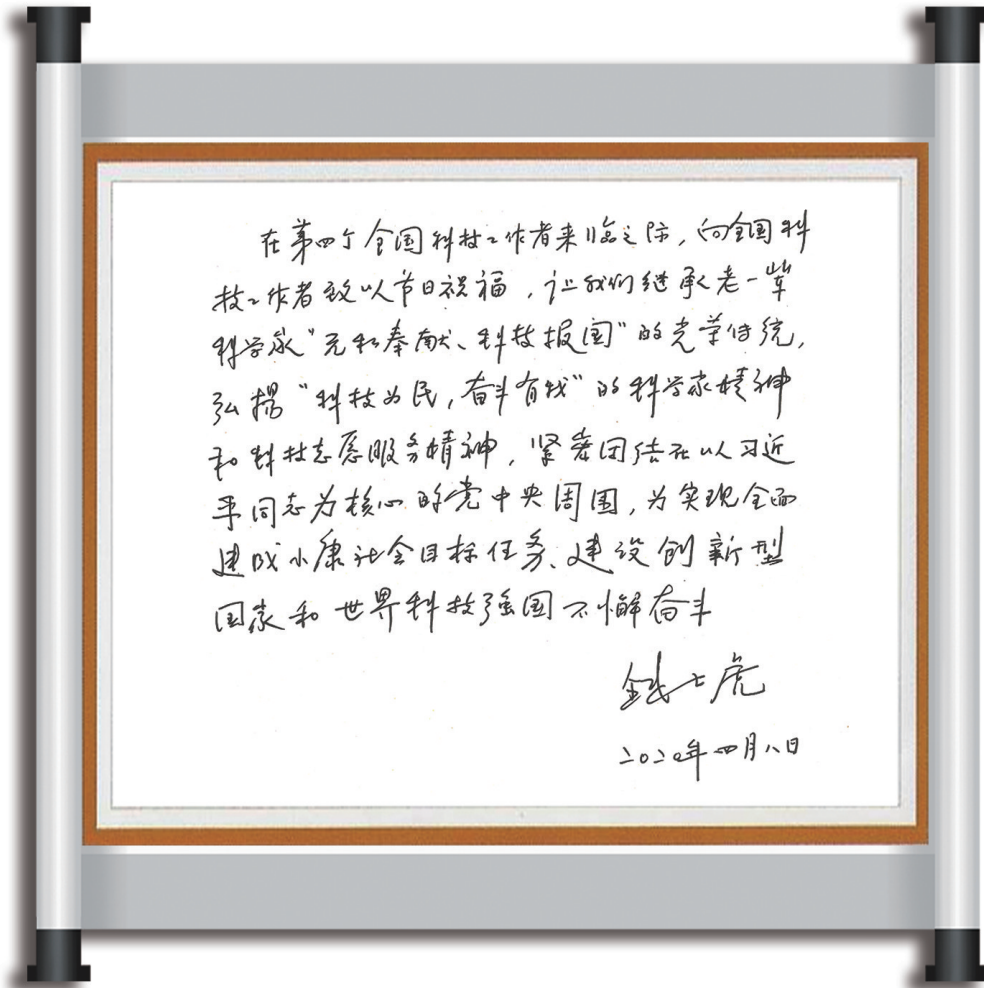 在第四个全国科技工作者来临之际，向全国科
技工作者致以节日祝福，让我们继承老一辈
科学家“无私奉献、科技报国”的光荣传统，
弘扬“科技为民，奋斗有我”的科学家精神
和科技志愿服务精神，紧密团结在以习近
平同志为核心的党中央周围，为实现全面
建成小康社会目标任务、建设创新型
国家和世界科技强国不懈奋斗
钱七虎
二〇二〇年四月八日